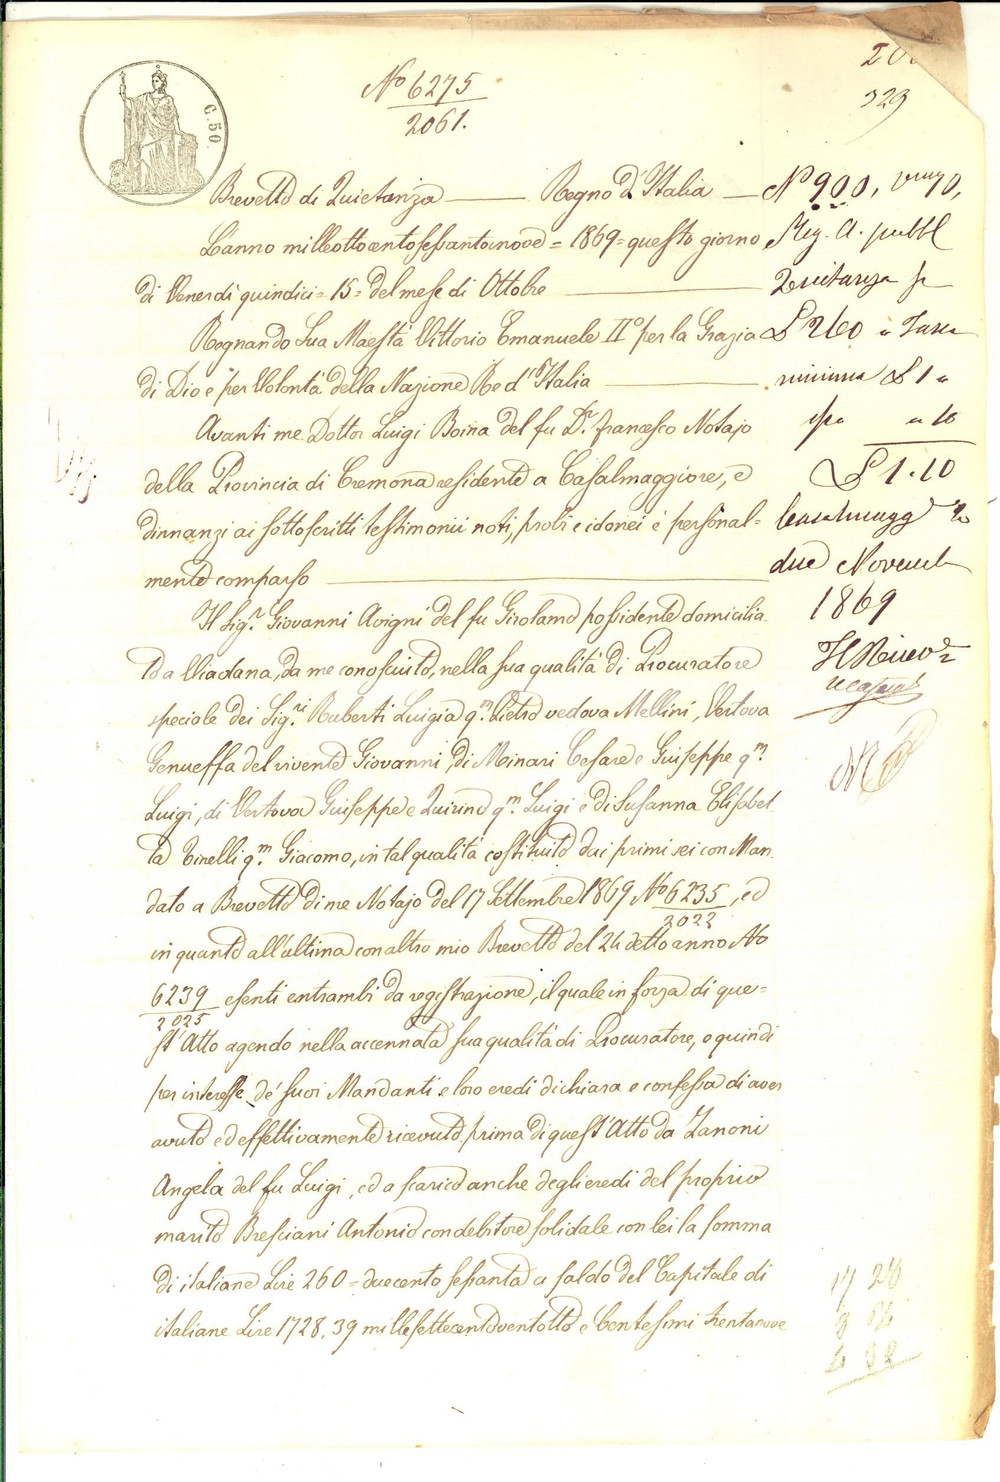 C. 50.
No 6275
2061.
329
Brevetto di Quietanza — Regno d'Italia —
L'anno milleottocentosessantanove = 1869 = questo giorno
di Venerdì quindici = 15 = del mese di Ottobre
Regnando Sua Maestà Vittorio Emanuele IIo per la Grazia
di Dio e per Volontà della Nazione Re d'Italia
Avanti me Dottor Luigi Boina del fu Dr. francesco Notajo
della Provincia di Cremona residente a Casalmaggiore, e
dinnanzi ai sottoscritti testimonii noti, probi e idonei è personal=
mente comparso
Il Sigr. Giovanni Avigni del fu Girolamo possidente domicilia
to a Viadana, da me conosciuto, nella sua qualità di Procuratore
speciale dei Sigri Ruberti Luigia qm Pietro vedova Mellini, Vertova
Genueffa del vivente Giovanni, di Minari Cesare e Guiseppe qm
Luigi, di Vertova Guiseppe e Quirino qm Luigi e di Susanna Elisabet
ta Tinelli qm Giacomo, in tal qualità costituito dai primi sei con Man
dato a Brevetto di me Notajo del 17 Settembre 1869 No 6235, ed
2022
in quanto all'ultima con altro mio Brevetto del 24 detto anno No
6239 esenti entrambi da registrazione, il quale in forza di que=
2025
st'Atto agendo nella accennata sua qualità di Procuratore, e quindi
per interesse de' suoi Mandanti e loro eredi dichiara e confessa di aver
avuto ed effettivamente ricevuto prima di quest'Atto da Zanoni
Angela del fu Luigi, ed a scarico anche degli eredi del proprio
marito Bresciani Antonio condebitore solidale con lei la somma
di italiane Lire 260 = duecento sessanta a saldo del Capitale di
italiane Lire 1728,39 millesettecentoventotto e Centesimi trentanove
No 900,
Reg. A. pubbl
Quietanza pr
£ 260 a Tassa
minima £ 1 "
" 10
£ 1.10
Casalmagg
due Novemb
1869
Il Ricevr
17 28